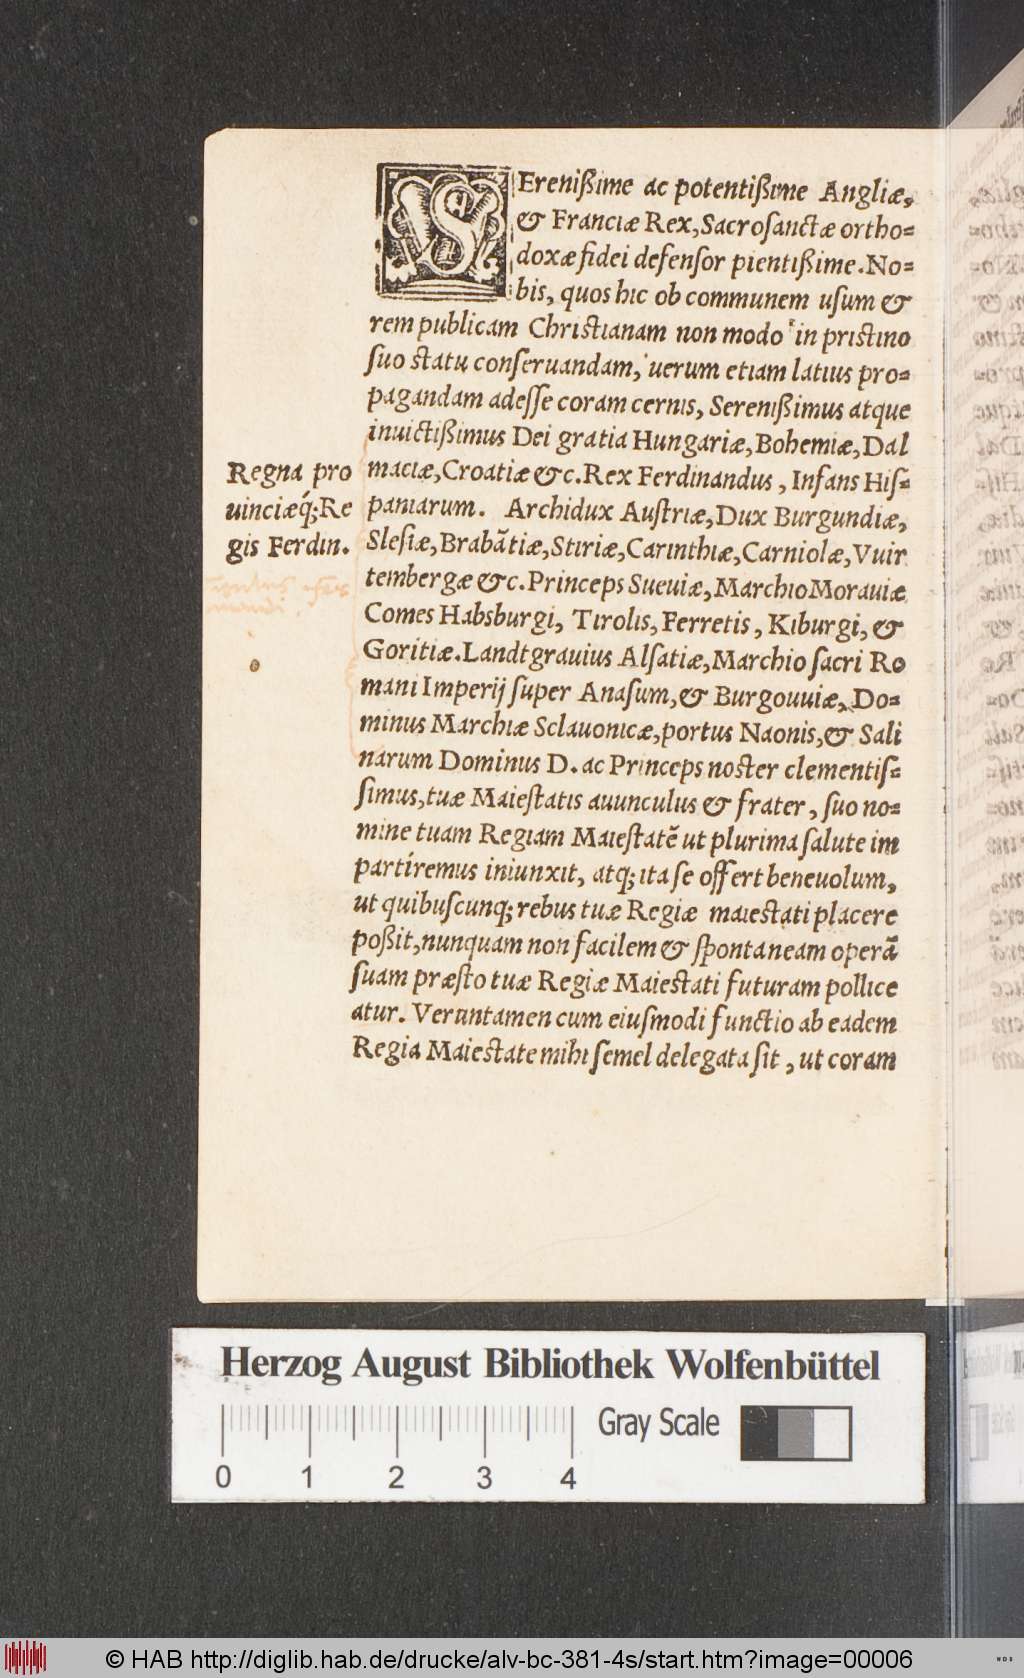 SErenißime ac potentißime Angliæ,
& Franciæ Rex, Sacrosanctæ ortho=
doxæ fidei defensor pientißime. No=
bis, quos hic ob communem usum &
rem publicam Christianam non modo in pristino
suo statu conseruandam, uerum etiam latius pro=
pagandam adesse coram cernis, Serenißimus atque
inuictißimus Dei gratia Hungariæ, Bohemiæ, Dal
maciæ, Croatiæ &c. Rex Ferdinandus, Infans His=
paniarum. Archidux Austriæ, Dux Burgundiæ,
Slesiæ, Brabãtiæ, Stiriæ, Carinthiæ, Carniolæ, Vuir
tembergæ &c. Princeps Sueuiæ, Marchio Morauiæ
Comes Habsburgi, Tirolis, Ferretis, Kiburgi, &
Goritiæ. Landtgrauius Alsatiæ, Marchio sacri Ro
mani Imperij super Anasum, & Burgouuiæ, Do=
minus Marchiæ Sclauonicæ, portus Naonis, & Sali
narum Dominus D. ac Princeps noster clementis=
simus, tuæ Maiestatis auunculus & frater, suo no=
mine tuam Regiam Maiestatẽ ut plurima salute im
partiremus iniunxit, atq; ita se offert beneuolum,
ut quibuscunq; rebus tuæ Regiæ maiestati placere
poßit, nunquam non facilem & spontaneam operã
suam præsto tuæ Regiæ Maiestati futuram pollice
atur. Veruntamen cum eiusmodi functio ab eadem
Regia Maiestate mihi semel delegata sit, ut coram
Regna pro
uinciæq́; Re
gis Ferdin.
Herzog August Bibliothek Wolfenbüttel
Gray Scale
0 1 2 3 4
© HAB http://diglib.hab.de/drucke/alv-bc-381-4s/start.htm?image=00006